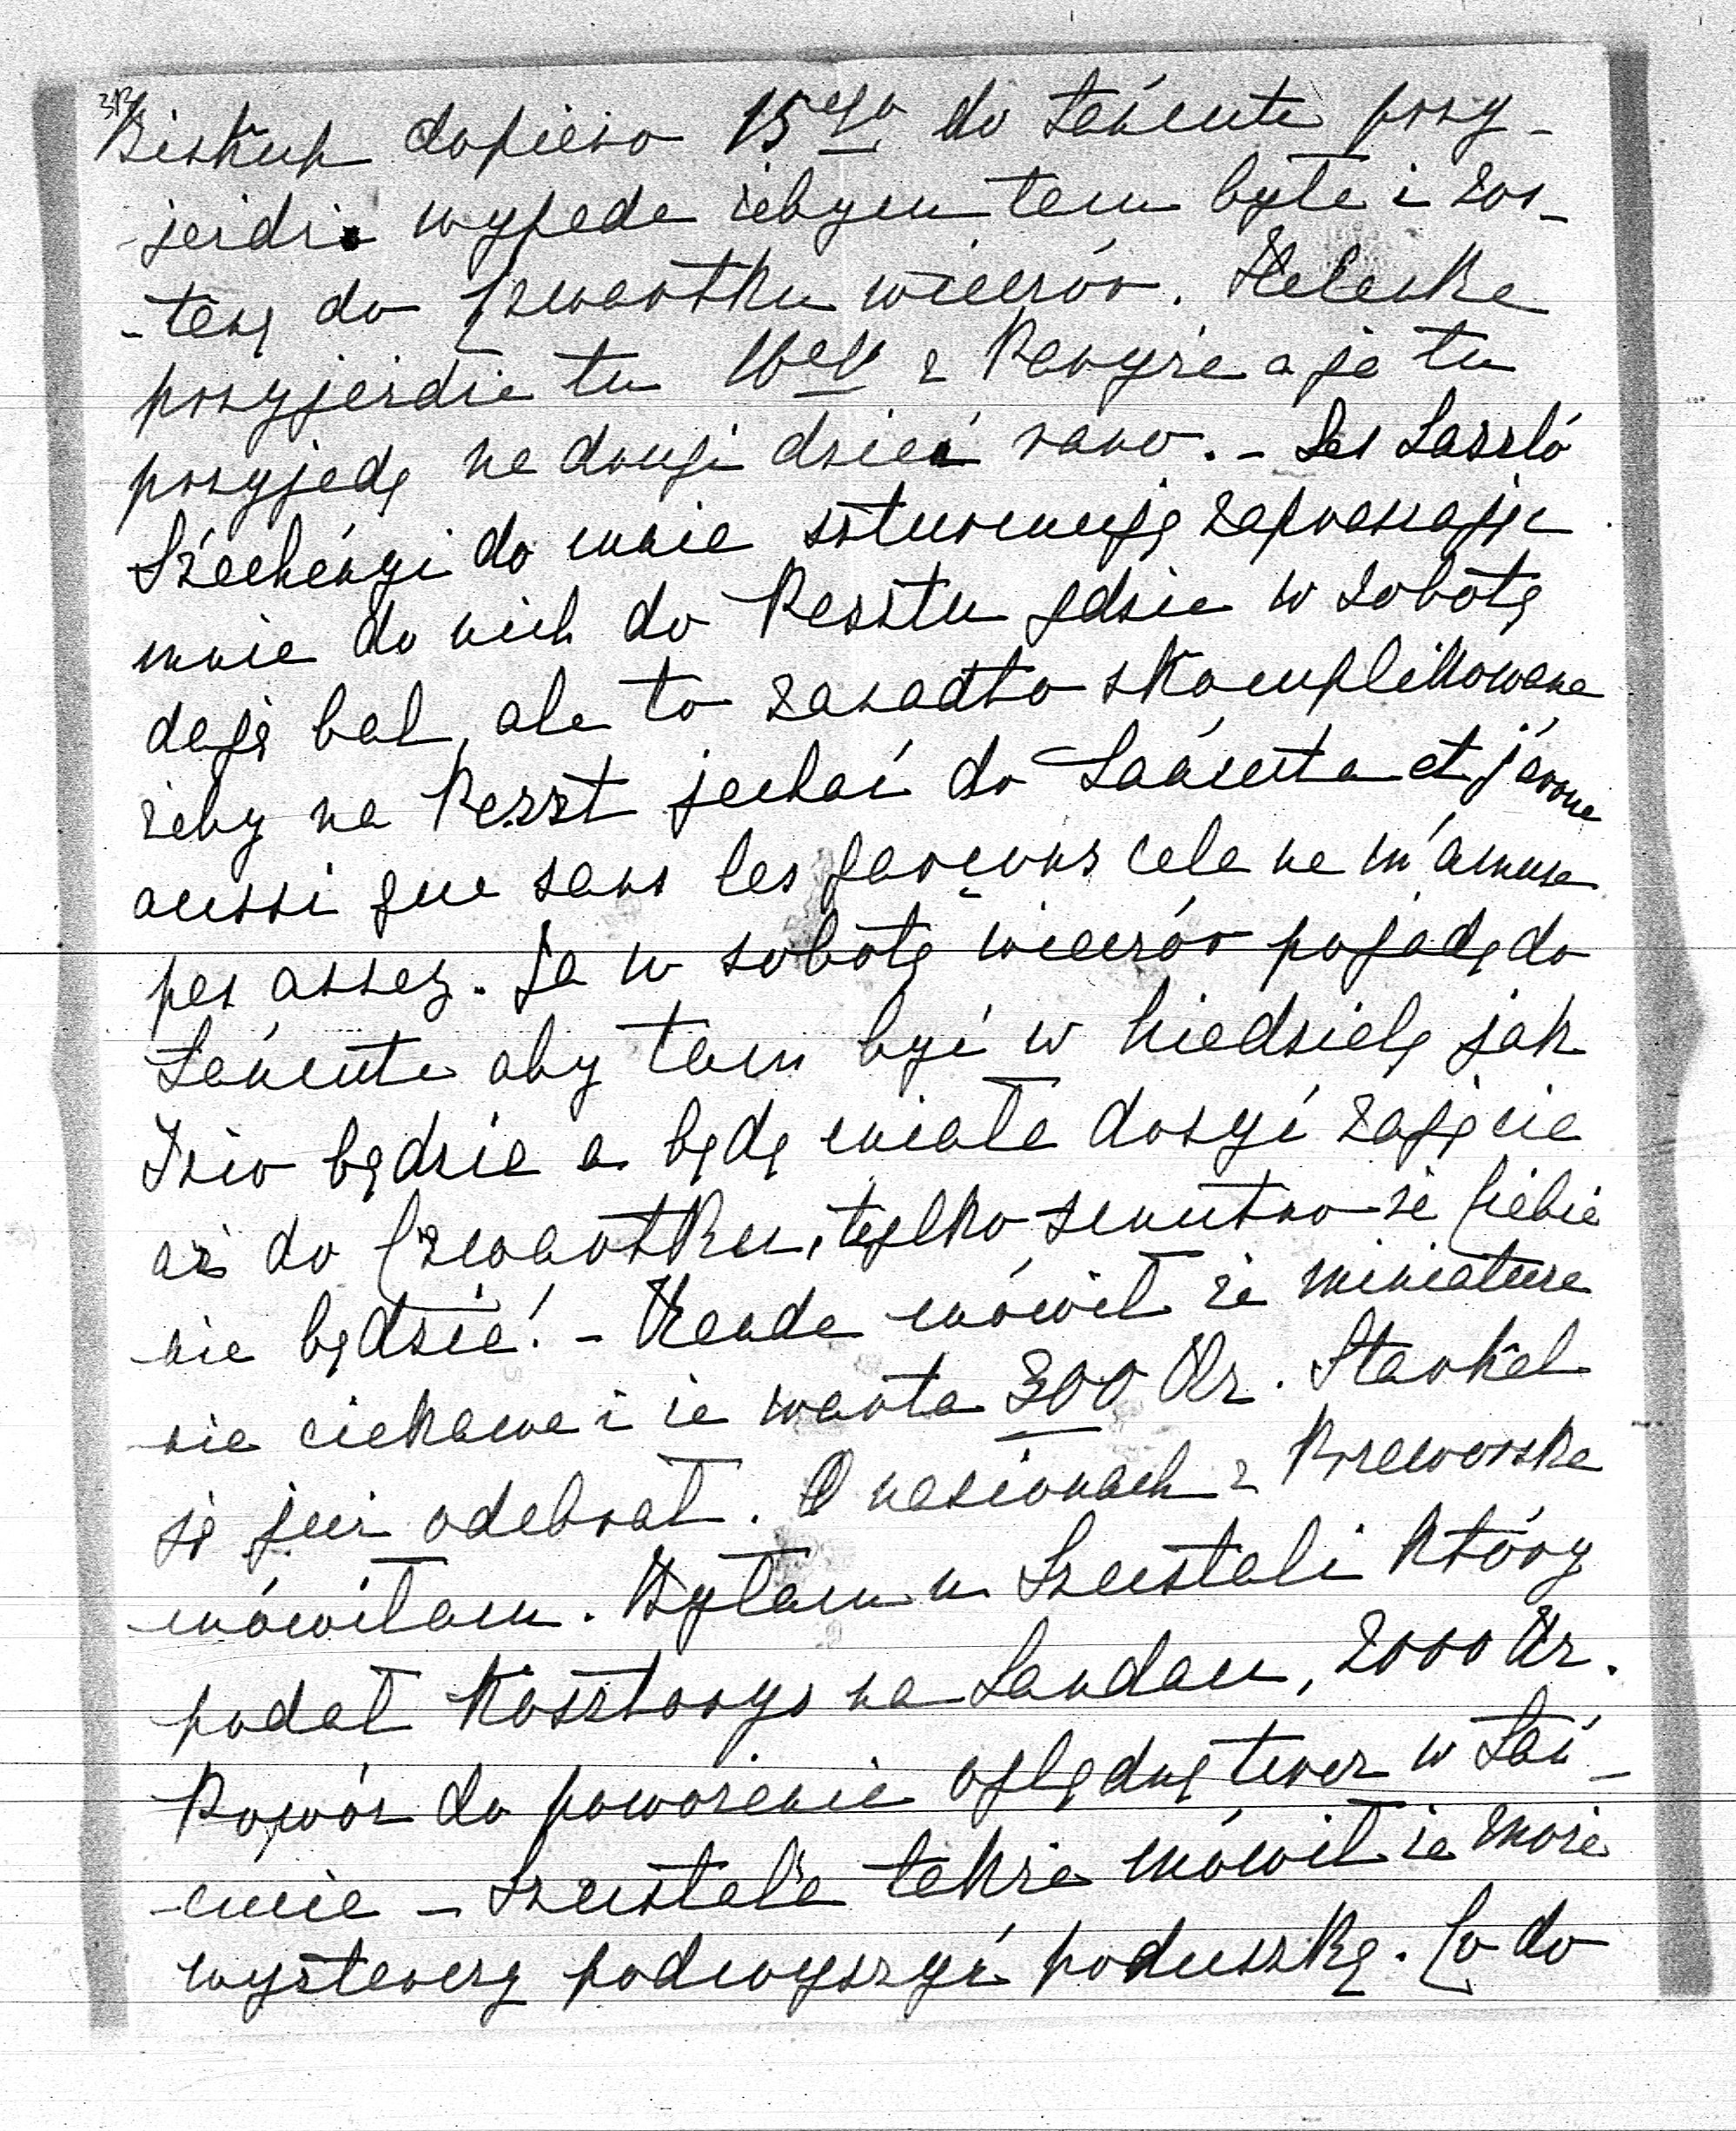 313
Biskup dopiero 15ego do Łańcuta przy-
-jeżdża wypada żebym tam była i zos-
-tanę do Czwartku wieczór. Helenka
przyjeżdża tu 16ego z Paryża a ja tu
przyjadę na drugi dzień rano. - Les László
Széchényi do mnie szturmują zapraszając
mnie do nich do Pesztu gdzie w sobotę
dają bal, ale to zanadto skomplikowane
żeby na Peszt jechać do Łańcuta et j'avoue
aussi que sans les garçons cela ne m'amuse
pas assez. Ja w sobotę wieczór pojadę do
Łańcuta aby tam być w niedzielę jak
Izio będzie a będę miała dosyć zajęcia
aż do Czwartku, tylko smutno że Ciebie
nie będzie! - Kende mówił że miniatura
nie ciekawa i że warta 300 Kr. Starkel
ją już odebrał. O nasionach z Przeworska
mówiłam. Byłam u Szustali który
podał kosztorys na Landau, 2000 Kr.
Powóz do powożenia oglądnę teraz w Łań-
-cucie - Szustala także mówił że może
wystarczy podwyższyć poduszkę. Co do